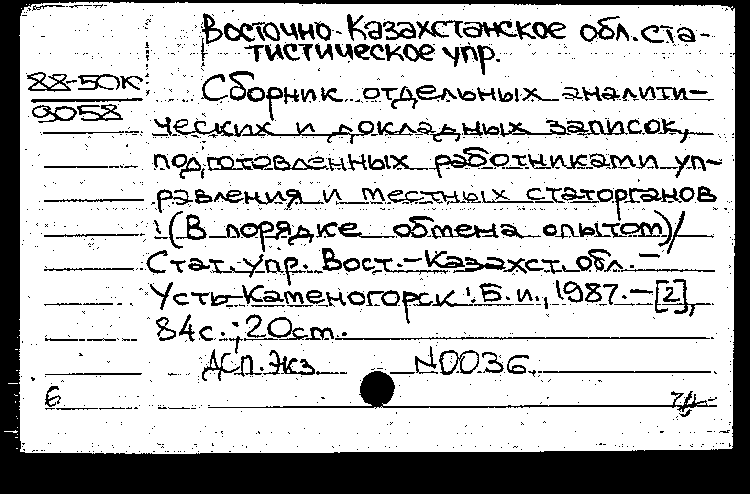 Восточно-Казахстанское обл. ста-
тистическое упр.
88-50К
9058
Сборник отдельных аналити-
ческих и докладных записок,
подготовленных работниками уп-
равления и местных статорганов
: (В порядке обмена опытом) /
Стат. упр. Вост.-Казахст. обл. -
Усть-Каменогорск : Б. и., 1987. - [2],
84с.; 20см.
ДСП. Экз. N0036.
6